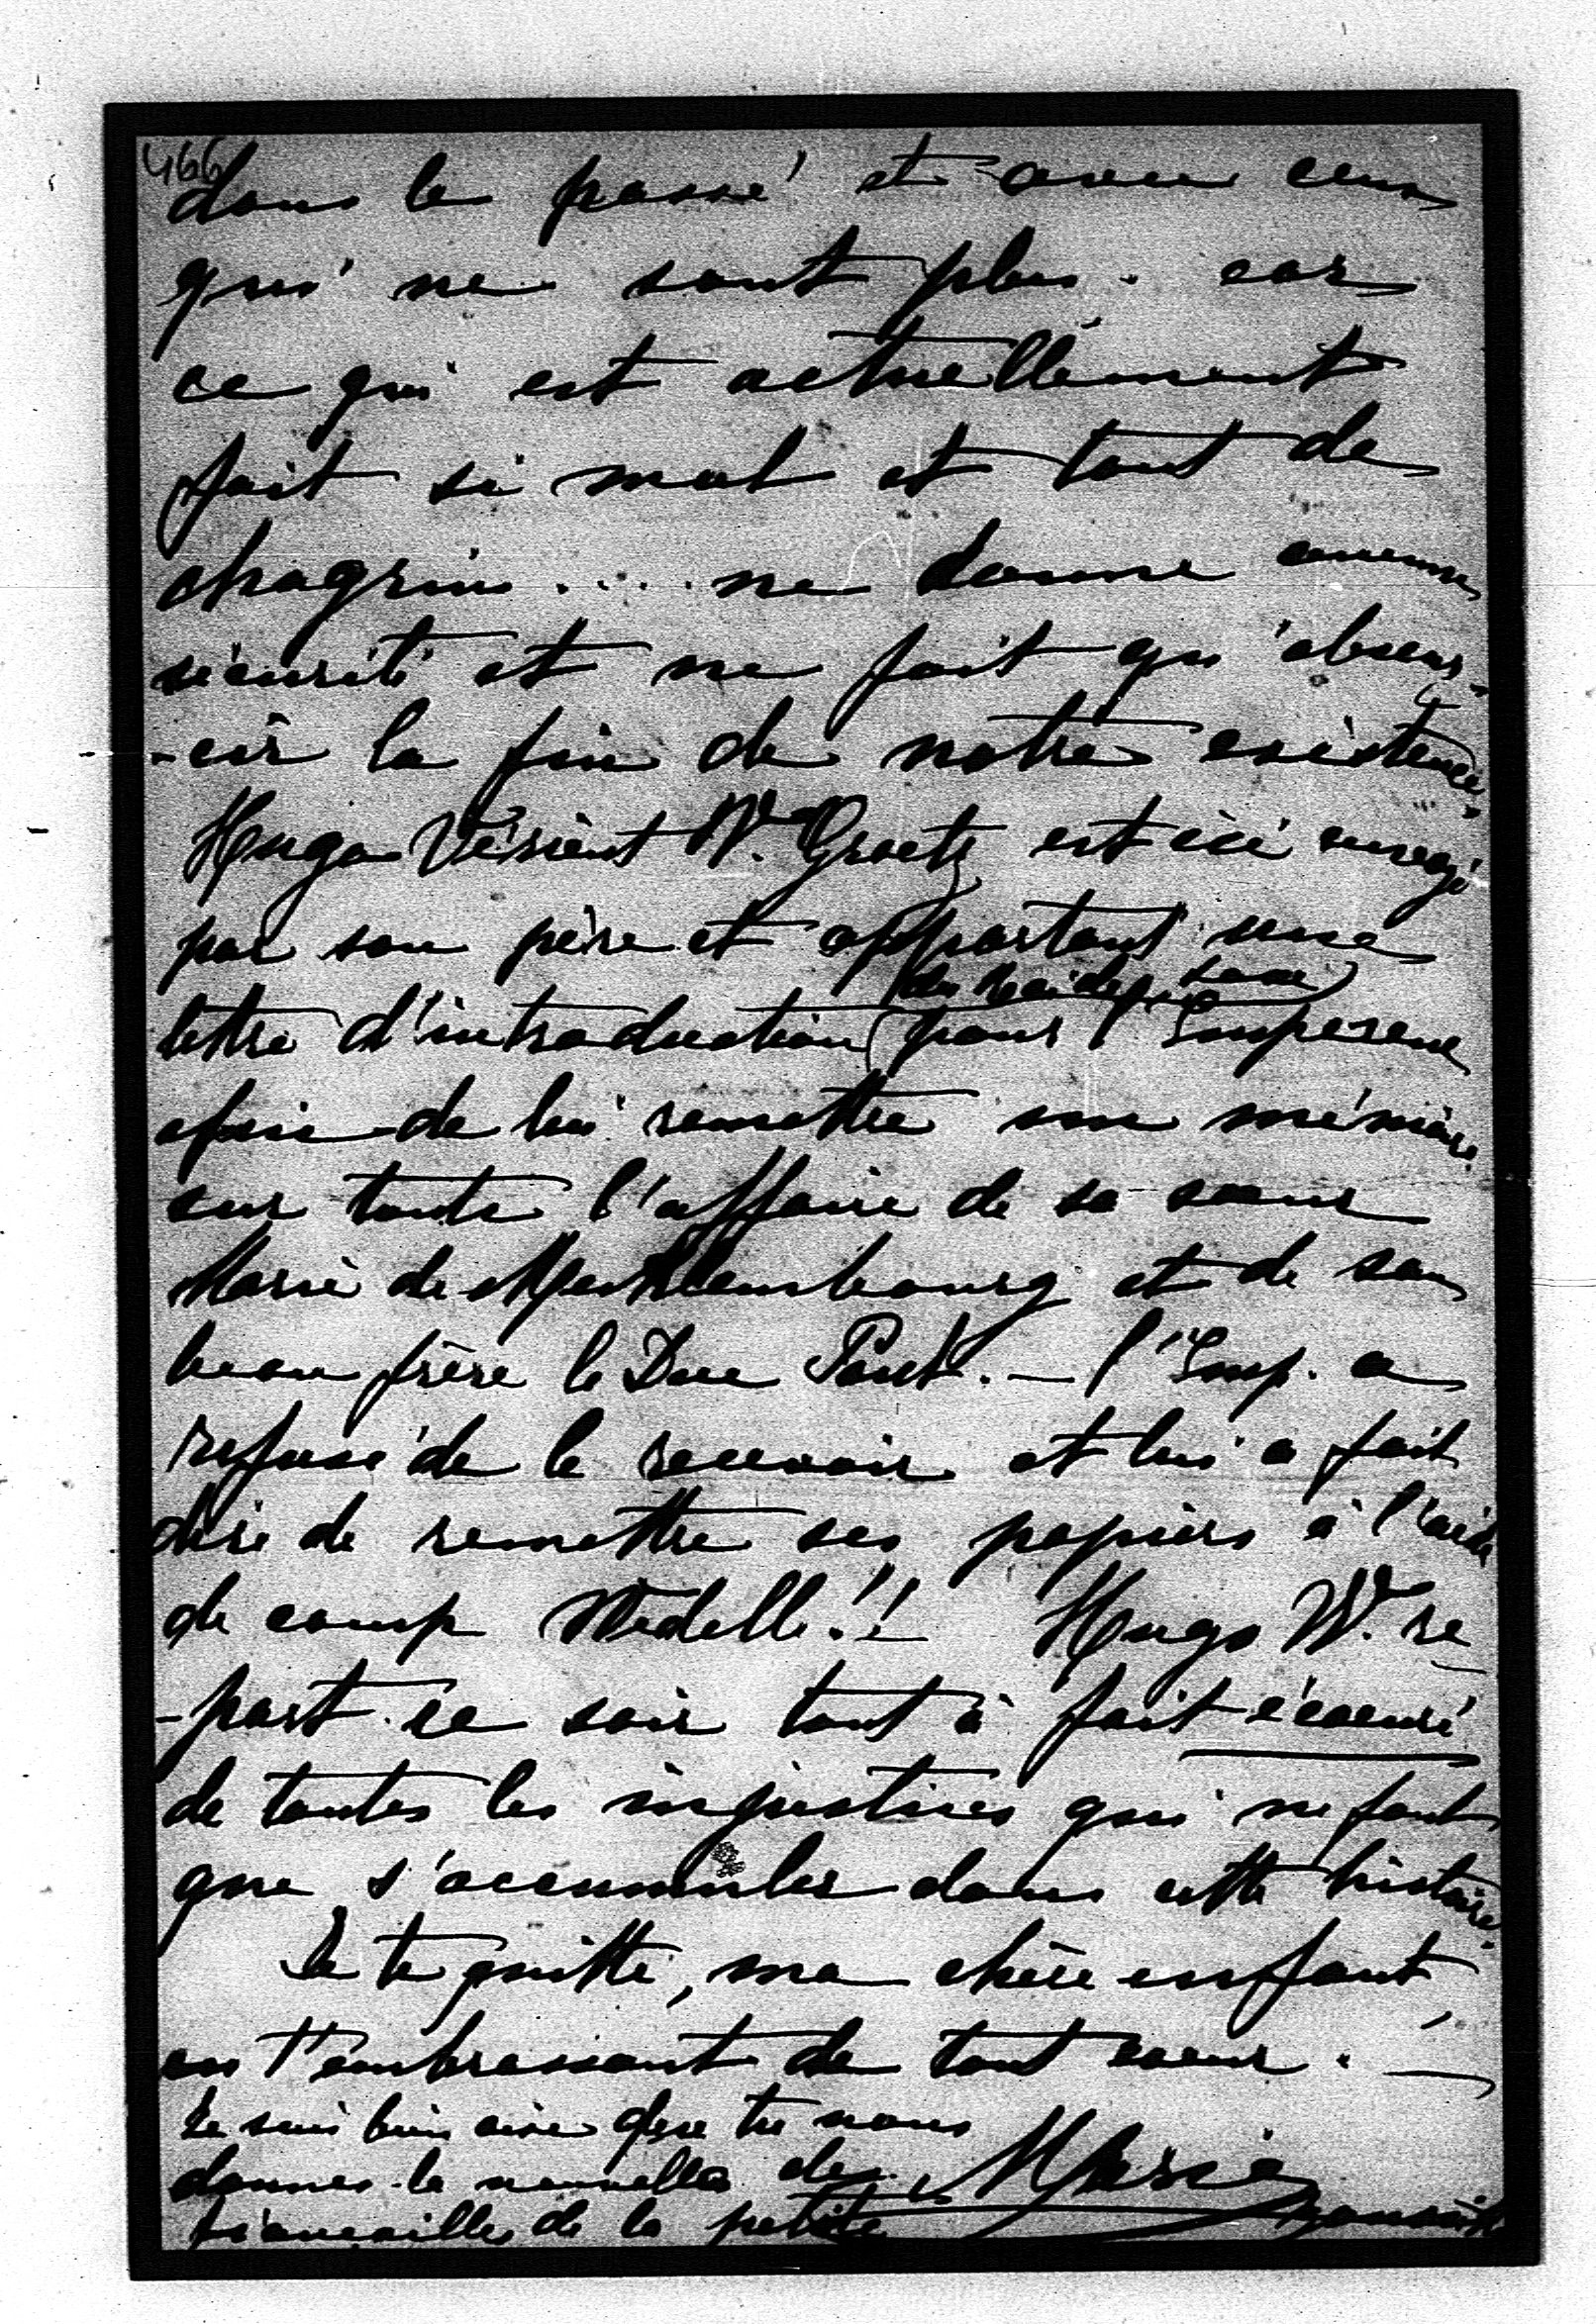 466
dans le passé et avec ceux
qui ne sont plus. car
ce qui est actuellement
fait si mal et tant de
chagrin.... ne donne aucune
sécurité et ne fait qu'obscur-
-cir la fin de notre existence.
Hugo W. Graetz est ici envoyé
par son père et apportant une
lettre d'introduction (du Roi de Saxe) pour l'Empereur
afin de lui remettre un mémoire
sur toute l'affaire de sa soeur
Marie de Mecklembourg et de son
beau frère le Duc Paul. — l'Emp. a
refusé de le recevoir et lui a fait
dire de remettre ses papiers à l'aide
de camp Wedell!! Hugo W. re
-part ce soir tout à fait écoeuré
de toutes les injustices qui ne font
que s'accumuler dans cette histoire.
Je te quitte, ma chère enfant,
en t'embrassant de tout coeur. —
Je suis bien aise que tu nous
donnes la nouvelle des
fiançailles de la petite
Marie